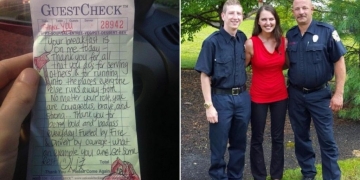 GUESTCHECK
28942
Your breakfast is
on me today -
Thank you for all
that you do; for serving
others & for running
into the places everyone
else runs away from.
No matter your role, you
are courageous, brave and
strong. Thank you for
being bold and badass
everyday! Fueled by fire
driven by courage - what
example you are. Get some
rest
Total